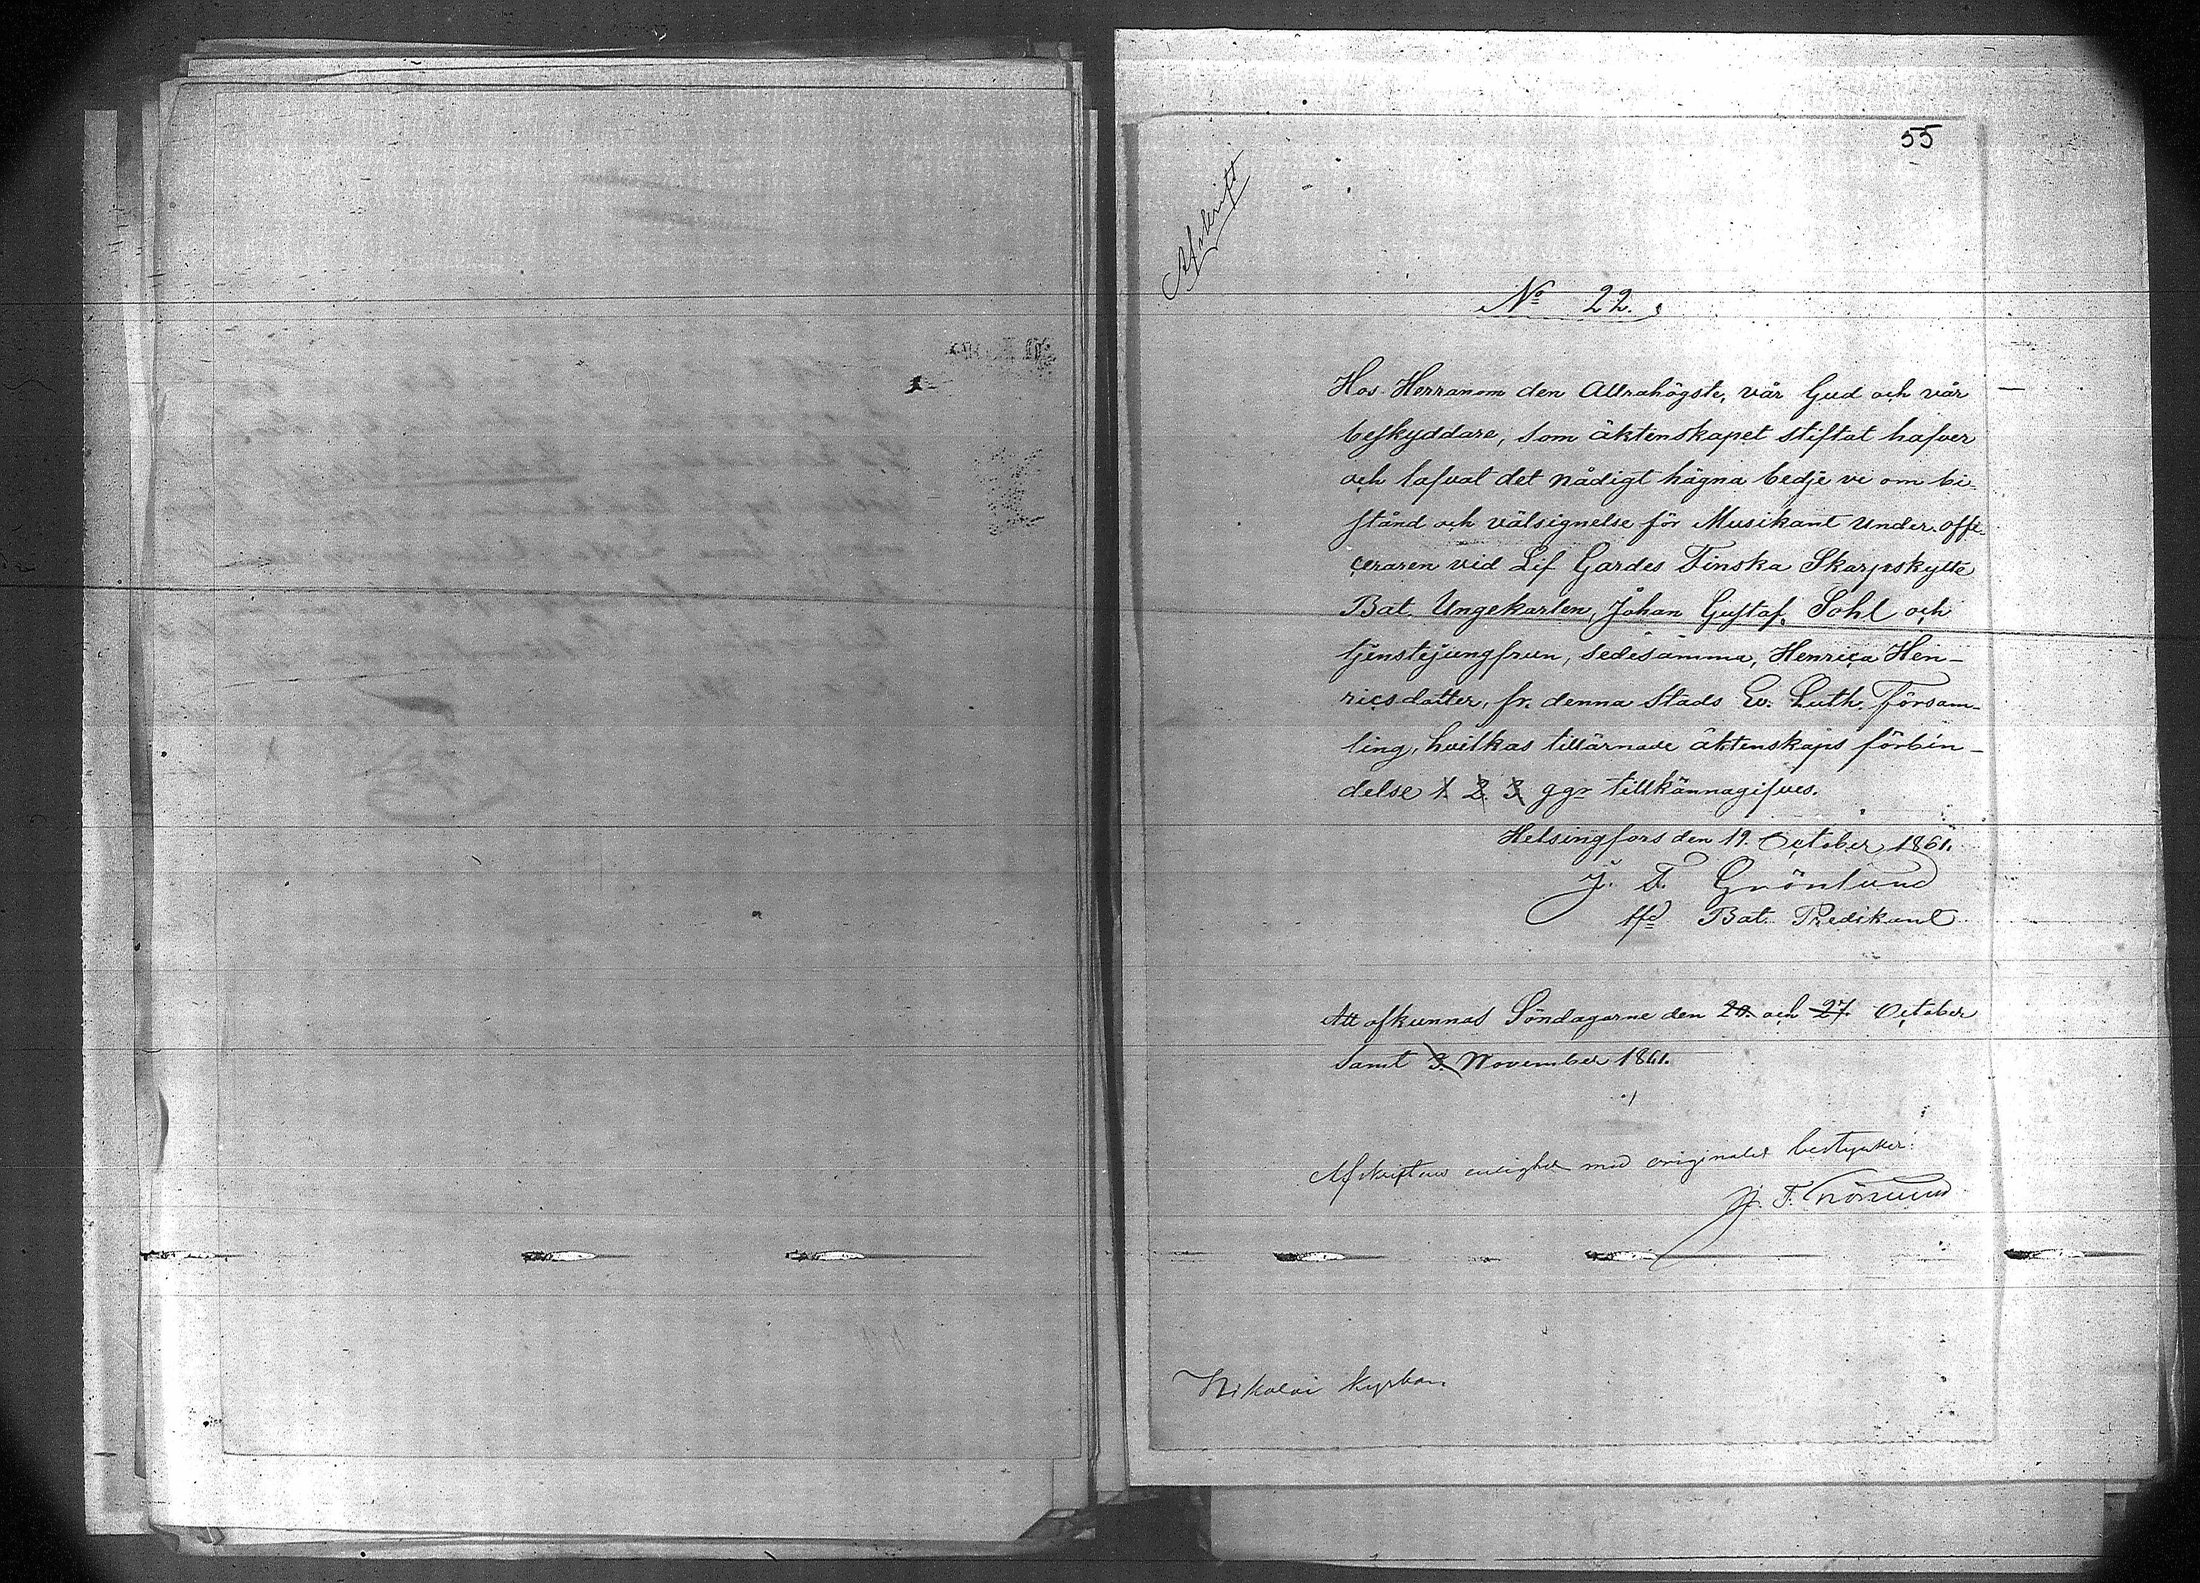 55
Afskrift
No 22.
Hos Herranom den Allrahögste, vår Gud och vår
beskyddare, som äktenskapet stiftat hafver
och lofvat det nådigt hägna bedje vi om bi-
stånd och välsignelse för Musikant Under-offi-
ceraren vid Lif Gardes Finska Skarpskytte
Bat. Ungekarlen, Johan Gustaf Sohl och
tjenstejungfrun, sedesamma, Henrica Hen-
ricsdotter, fr. denna Stads Ev. Luth. Försam-
ling, hvilkas tillärnade äktenskaps förbin-
delse 1. 2. 3. ggr tillkännagifves.
Helsingfors den 19. October 1861.
J. F. Grönlund
Bat. Predikant
Att afkunnas Söndagarne den 20. och 27. October
samt 3. November 1861.
Afskriftens enlighet med originalet bestyrker:
J. F. Grönlund
Nikolai kyrkan